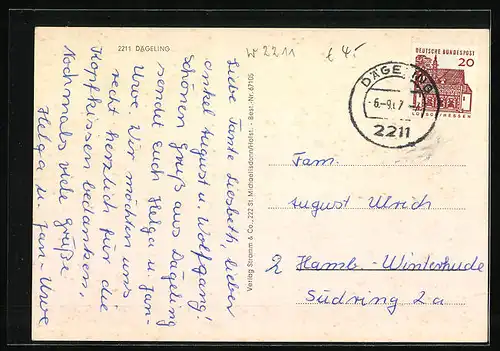 2211 DÄGELING
W 2211
€ 4.-
Liebe Tante Liesbeth, lieber
onkel August u. Wolfgang!
schönen Gruß aus Dägeling
sendet Euch Helga u. Jan-
Uwe. Wir möchten uns
recht herzlich für die
Kopfkissen bedanken,
Nochmals viele grüße
Helga u. Jan-Uwe
Verlag Stramm & Co., 222 St. Michaelisdonn/Holst. - Best.-Nr. 67105
DEUTSCHE BUNDESPOST
20
LORSCH/HESSEN
DÄGELING
-6.-9.67
2211
Fam.
August Ulrich
2 Hamb.-Winterhude
Südring 2a